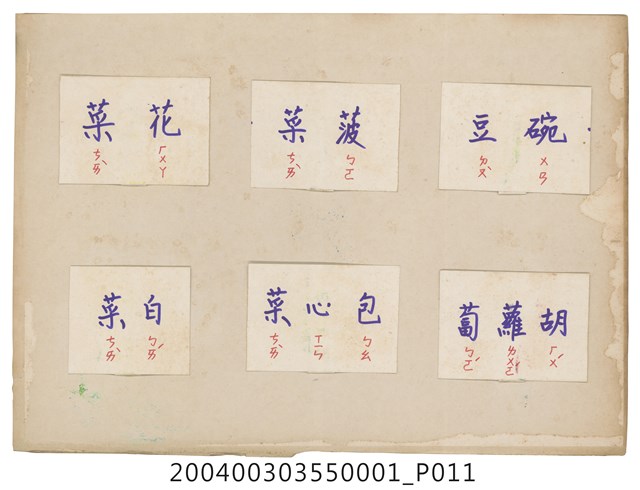 碗豆
ㄨㄢ ㄉㄡˋ
菠菜
ㄅㄛ ㄘㄞˋ
花菜
ㄏㄨㄚ ㄘㄞˋ
胡蘿蔔
ㄏㄨˊ ㄌㄨㄛˊ ㄅㄛˊ
包心菜
ㄅㄠ ㄒㄧㄣ ㄘㄞˋ
白菜
ㄅㄞˊ ㄘㄞˋ
200400303550001_P011